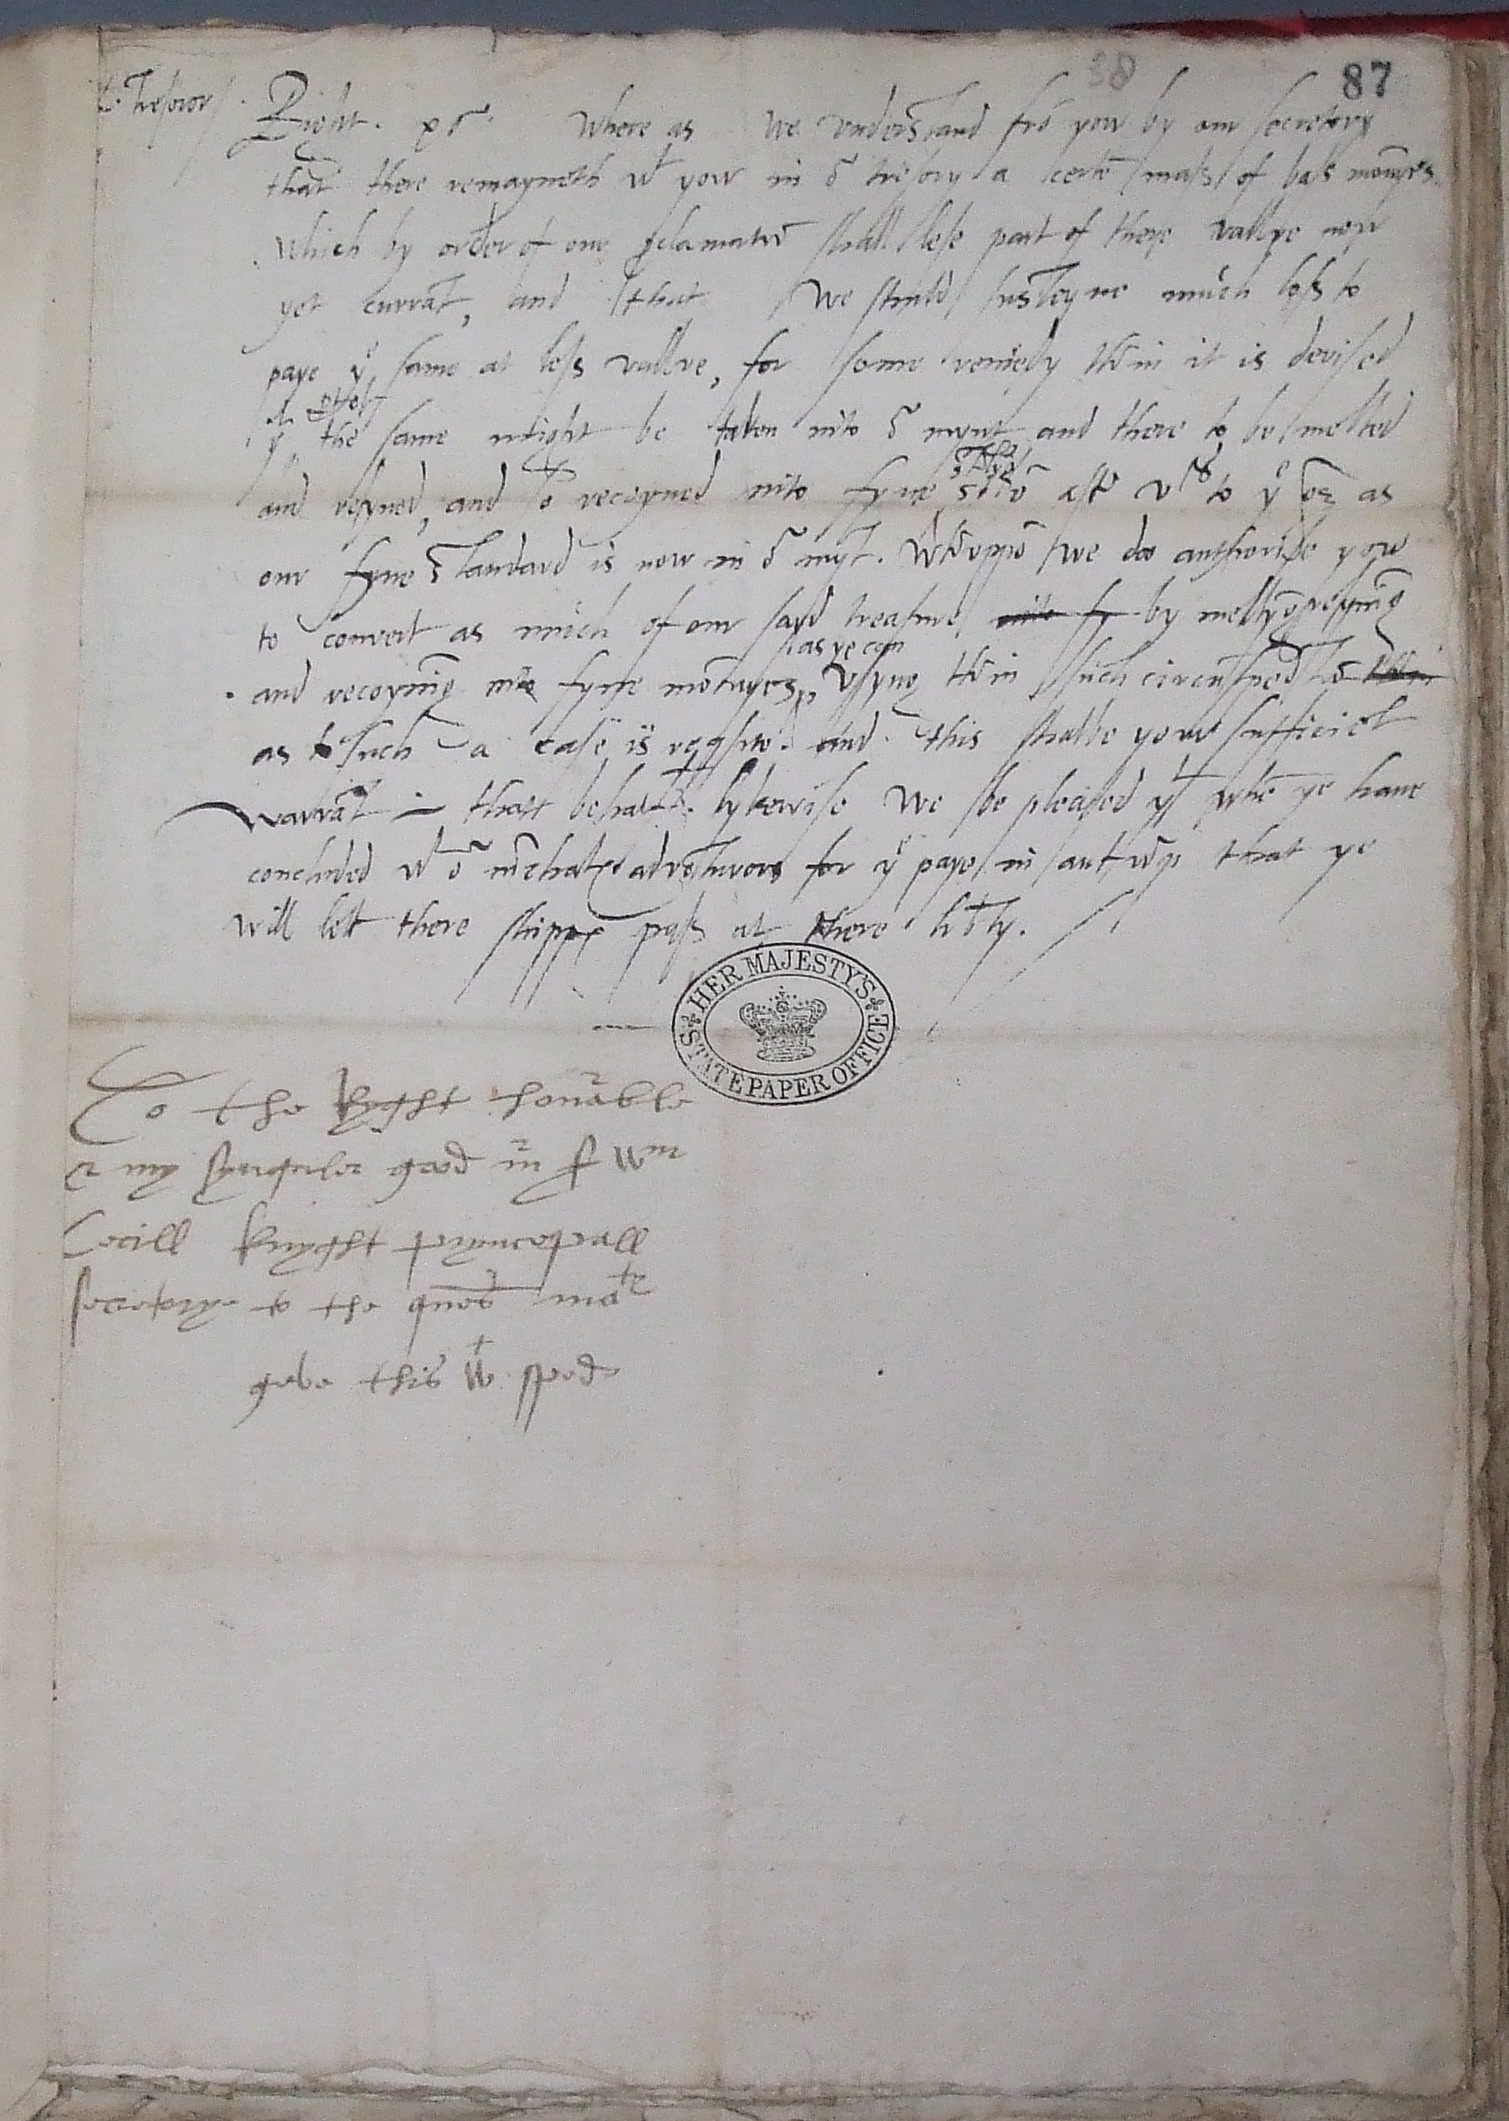 38
87
L. Tresoror
Right. &c. Where as we understand frō yow by our secretory
that there remayneth wt yow in or tresory a certē mass of bass monnyes
which by order of our proclamatiō shall lese part of there vallue now
yet currāt, and that we shuld susteyne much loss to
paye ye same at less vallue, for some remedy therin it is devised
yt the same might be taken into or mynt and there to be melted
and refyned, and recoyned into fyne as
our fyne standard is now in or mynt. Wheruppō we do authorise yow
to convert as much of our sayd treasure into fy by meltyng refyning
as ye can
and recoyning into fyne monnyes, usyng therin such circūspectiō
as to such a case is reqsite. and this shalbe your sufficiēt
warrāt in that behalf. lykewise we be pleased yt whē ye have
concluded wt or merchātes advēturors for ye paye in antwerp that ye
will lett there shippes pass at there libty.
HER MAJESTY'S
STATE PAPER OFFICE
To the Ryght honorable
& my synguler good mr Sr Wm
Cecill knyght pryncypall
secretorye to the quenes matie
geve this wt spede